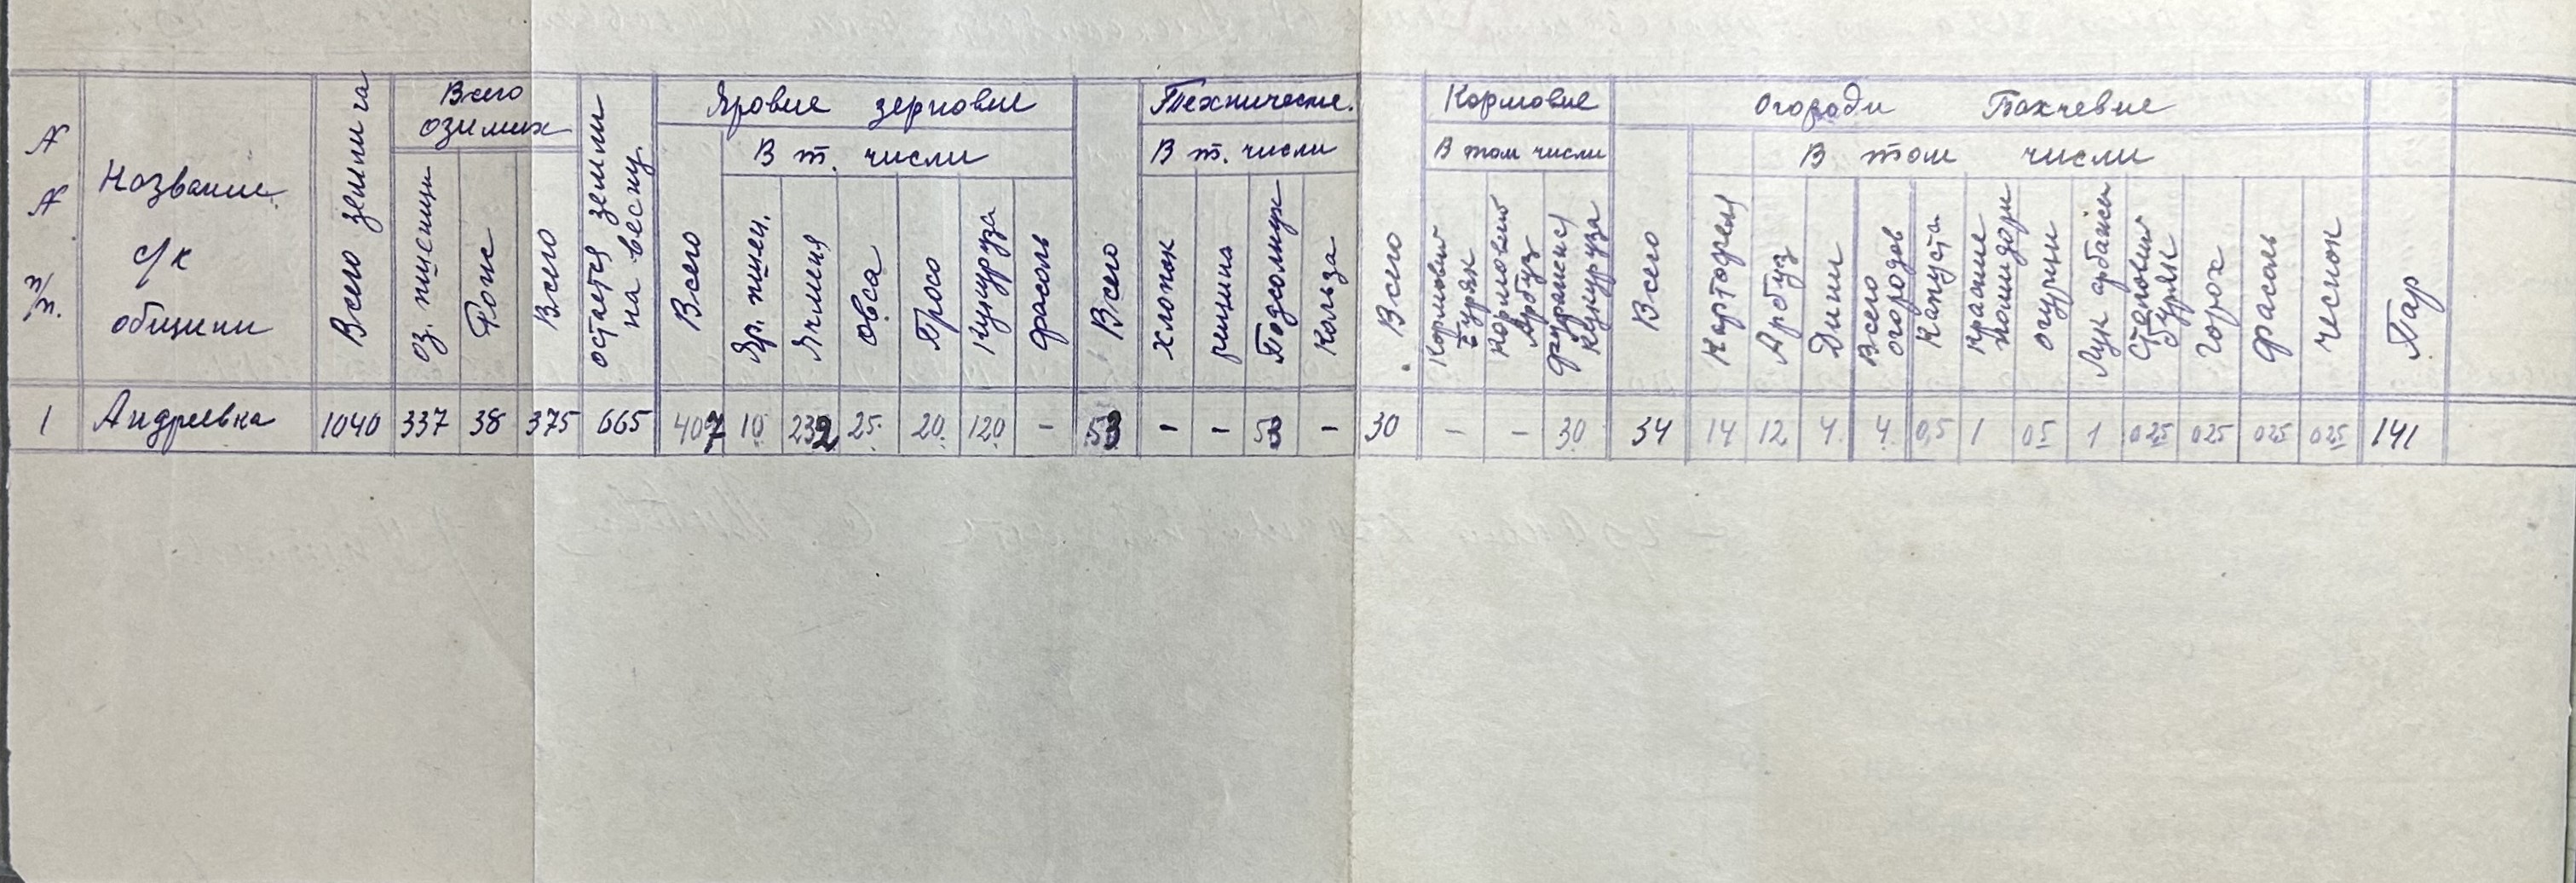 N N п/п.
Название с/к общини
Всего земли га
Всего озимих
оз. пшеници
Рожь
Всего
остается земли на весну
Яровие зерновие
Всего
В т. числи
Яр. пшен.
Ячменя
Овса
Просо
Кукуруза
Фасоль
Всего
Технические.
В т. числи
хлопок
рицина
Подсолнух
Кользa
Всего
Кормовие
В том числи
Кормовий Буряк
Кормовий Арбуз
Кукуруза
огороди Бахчевие
Всего
В том числи
Картофеля
Арбуз
Дини
Всего огородов
Капуста
Красние помидори
огурци
Лук
Столовий буряк
горох
Фасоль
чеснок
Пар
1 Андреевка 1040 337 38 375 665 407 10 232 25 20 120 - 53 - - 53 - 30 - - 30 34 14 12 4 4 0,5 1 05 1 025 025 025 025 141